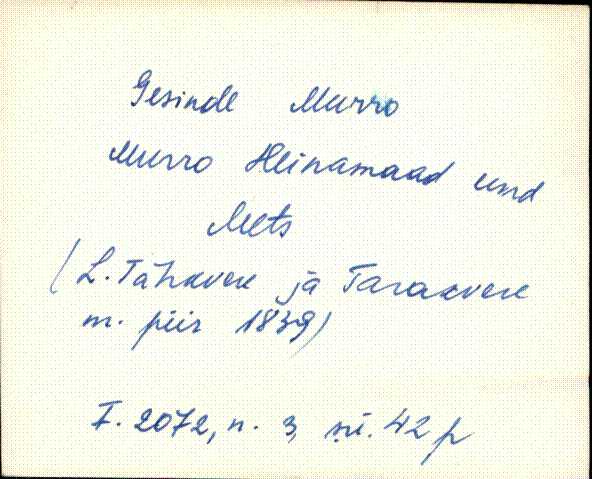 Gesinde Murro
Murro Heinamaad und
Mets
(L. Tähkvere ja Taraavere
m. piir 1839)
F. 2072, n. 3, sü. 42 p